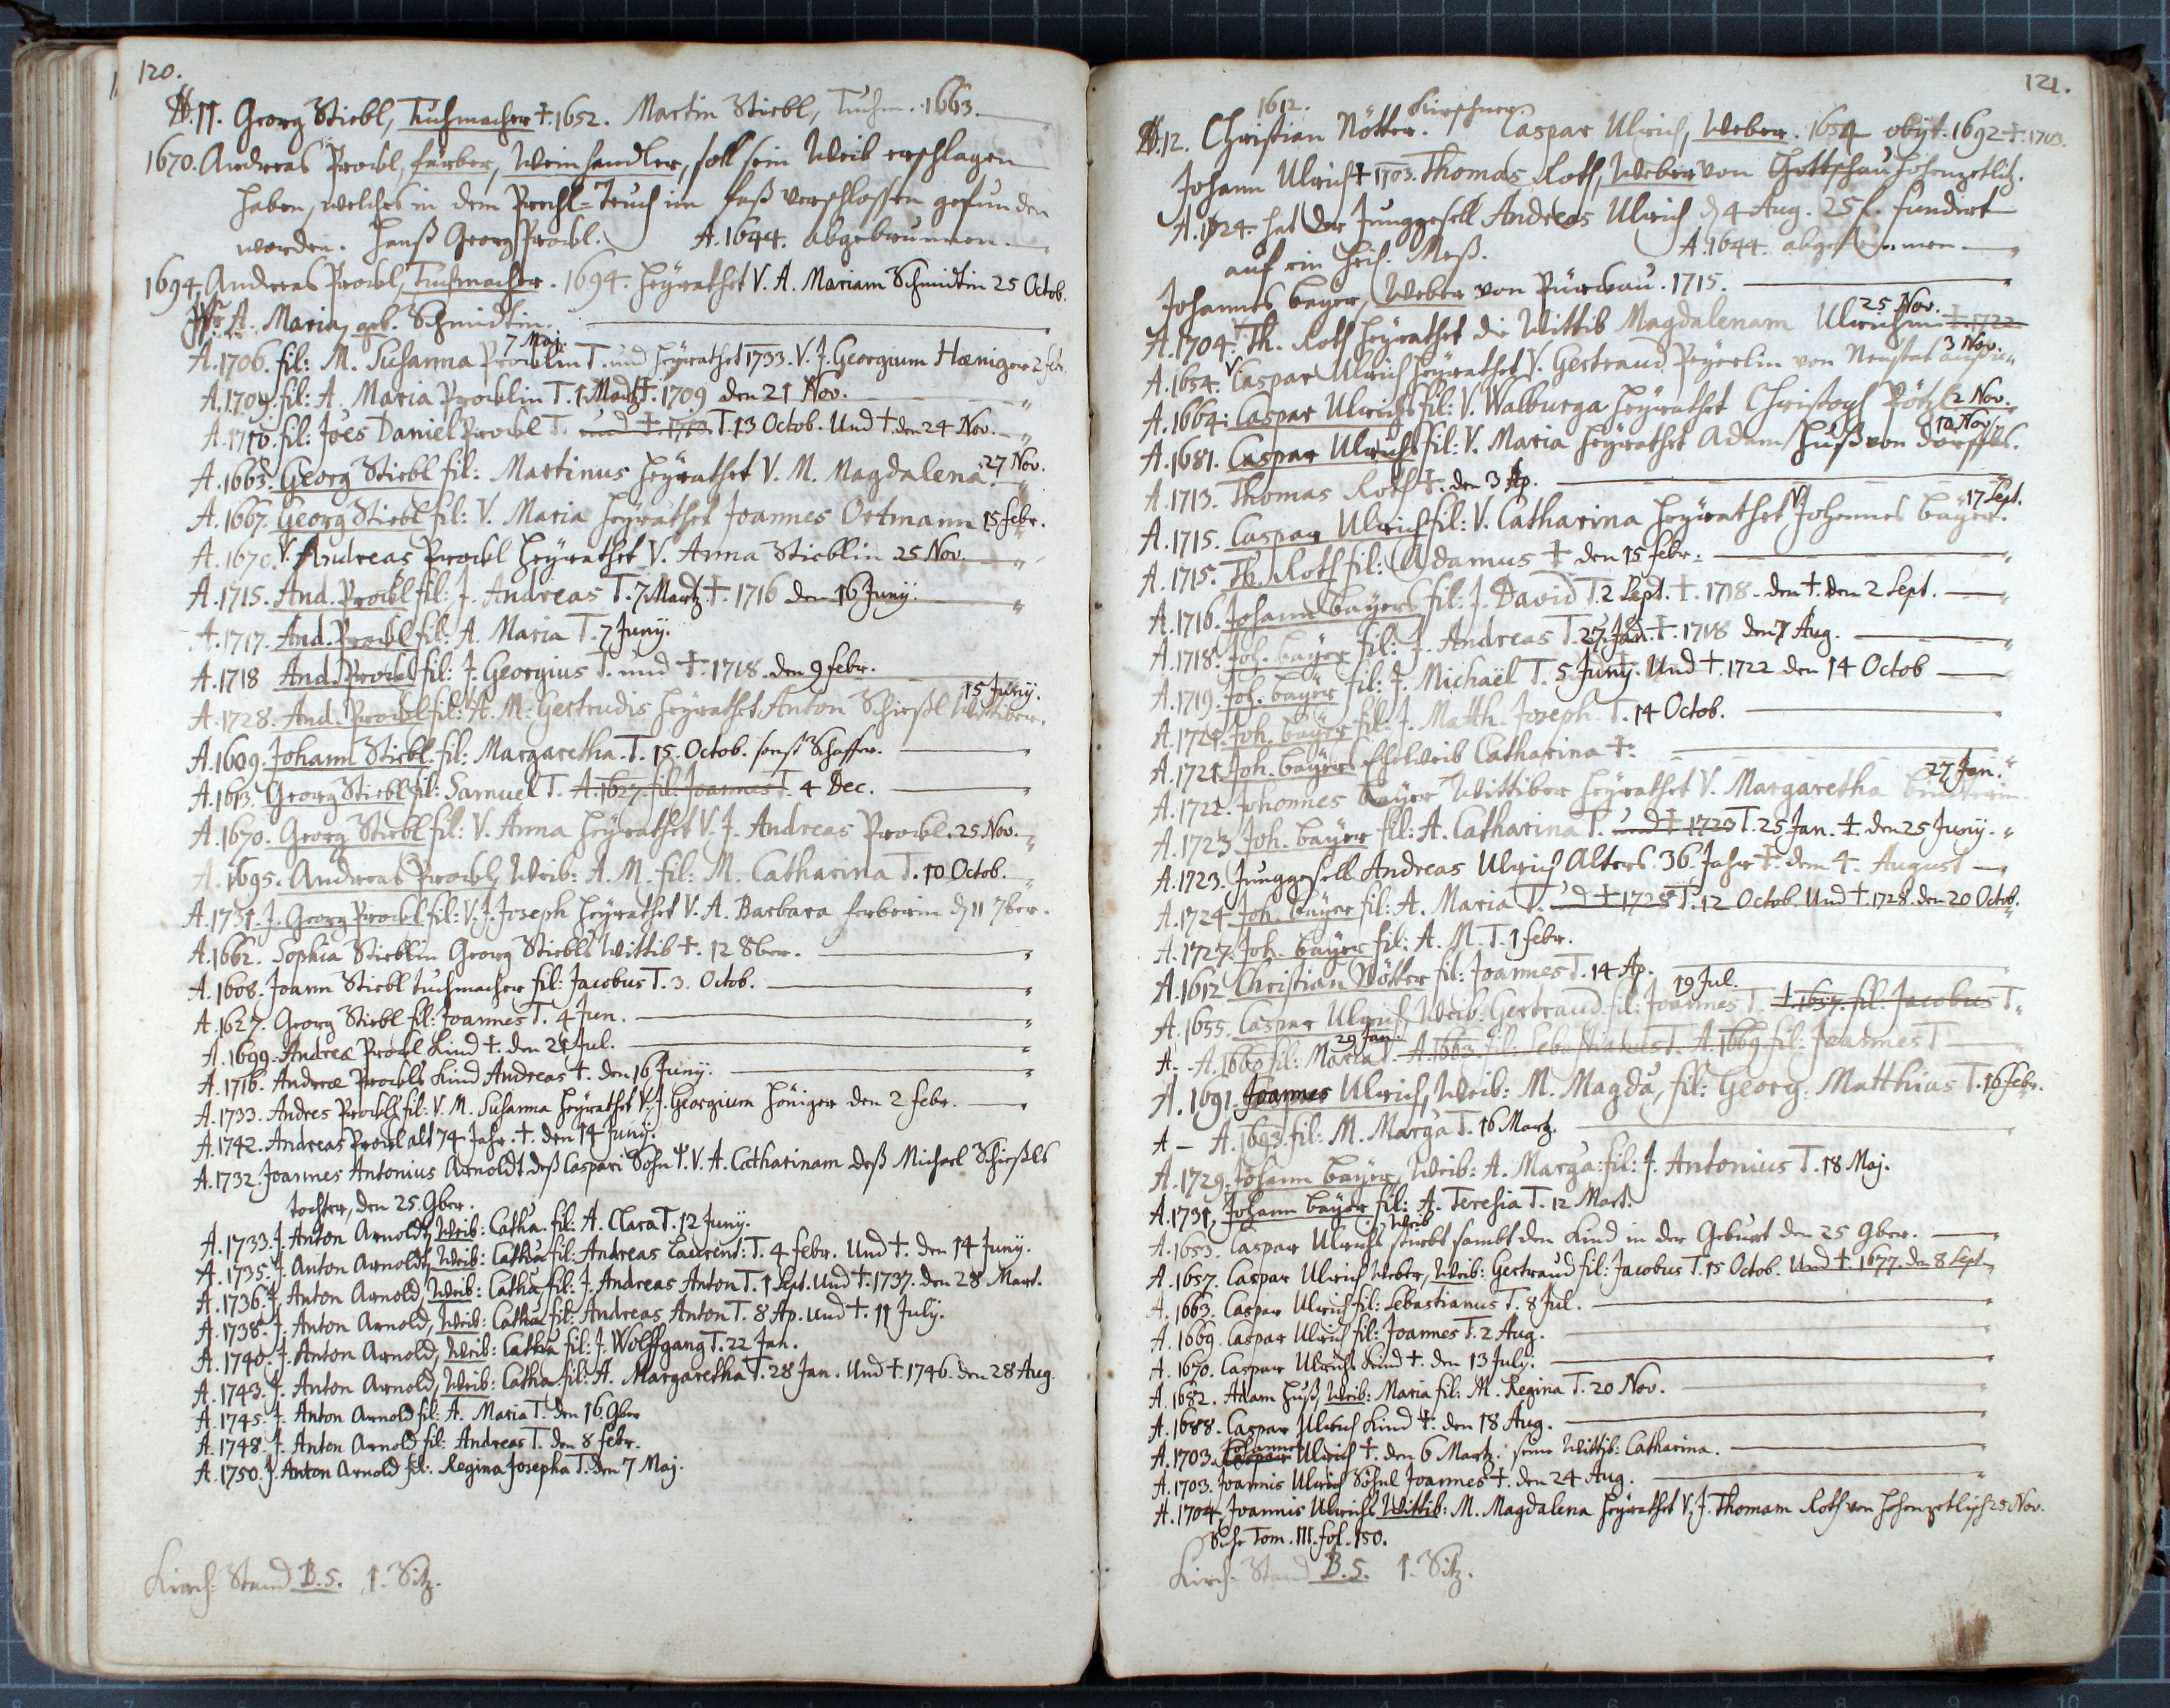 120.
N. 11. Georg Stiebl, Tuchmacher †. 1652. Martin Stiebl, Tuchm. 1663.
1670. Andreas Prockl, färber, Weinhandler, soll sein Weib erschlagen
haben, welches in dem Prechl=Teuch im faß verschlossen gefunden
worden. Hanß Georg Prockl. A. 1644. abgebrunnen.
1694. Andreas Prockl, Tuchmacher. 1694. heÿrathet V. A. Mariam Schmidtin 25 Octob.
A. Maria, geb. Schmidtin.
7 Maj.
A. 1706. fil: M. Susanna Procklin T. und heÿrathet 1733. V. J. Georgium Hæniger 2 febr.
A. 1709. fil: A. Maria Procklin T. 1 Martz †. 1709 den 21 Nov.
A. 1710. fil: Joes Daniel Prockl T. und †. 1710. T. 13 Octob. Und †. den 24 Nov.
A. 1663. Georg Stiebl fil: Martinus heÿrathet V. M. Magdalena. 27 Nov.
A. 1667. Georg Stiebl fil: V. Maria heÿrathet Joannes Ortmann 15 febr.
A. 1670. V. Andreas Prockl heÿrathet V. Anna Stieblin 25 Nov.
A. 1715. And. Prockl fil: J. Andreas T. 7 Martz †. 1716 den 16 Junÿ.
A. 1717. And. Prockl fil: A. Maria T. 7 Junÿ.
A. 1718 And. Prockl fil: J. Georgius T. und †. 1718. den 9 febr.
15 Junÿ.
A. 1728. And. Prockl fil: V. A. M. Gertrudis heÿrathet Anton Schießl Wittiber.
A. 1609. Johann Stiebl fil: Margaretha. T. 15. Octob. sonst Schaffer.
A. 1613. Georg Stiebl fil: Samuel T. A. 1627. fil: Joannes T. 4 Dec.
A. 1670. Georg Stiebl fil: V. Anna heÿrathet V. J. Andreas Prockl. 25 Nov.
A. 1695. Andreas Prockl, Weib: A. M. fil: M. Catharina T. 10 Octob.
A. 1731. J. Georg Prockl fil: V. J. Joseph heÿrathet V. A. Barbara ferberin d 11 7ber.
A. 1662. Sophia Stieblin Georg Stiebls Wittib †. 12 8ber.
A. 1608. Joann Stiebl tuchmacher fil: Jacobus T. 3. Octob.
A. 1627. Georg Stiebl fil: Joannes T. 4 Jun.
A. 1699. Andreæ Prockl Kind †. den 21 Jul.
A. 1716. Andreæ Prockls Kind Andreas †. den 16 Junÿ.
A. 1733. Andres Prockls fil: V. M. Susanna heÿrathet V. J. Georgium Höniger den 2 febr.
A. 1742. Andreas Prockl alt 74 Jahr. †. den 14 Junÿ.
A. 1732. Joannes Antonius Arnoldt deß Caspari Sohn V. A. Catharinam deß Michael Schießls
tochter, den 25. 9ber.
A. 1733. J. Anton Arnoldt, Weib: Catha. fil: A. Clara T. 12 Junÿ.
A. 1735. J. Anton Arnoldt, Weib: Catha fil: Andreas Laurent: T. 4 febr. Und †. den 14 Junÿ.
A. 1736. J. Anton Arnold, Weib: Catha, fil: J. Andreas Anton T. 1 Sept. Und †. 1737. den 28 Mart.
A. 1738. J. Anton Arnold, Weib: Catha fil: Andreas Anton T. 8 Ap. und †. 11 Julÿ.
A. 1740. J. Anton Arnold, Weib: Catha fil: J. Wolffgang T. 22 Jan.
A. 1743. J. Anton Arnold, Weib: Catha fil: A. Margaretha T. 28 Jan. Und †. 1746. den 28 Aug.
A. 1745. J. Anton Arnold fil: A. Maria T. den 16. 9ber
A. 1748. J. Anton Arnold fil: Andreas T. den 8 febr.
A. 1750. J. Anton Arnold fil: Regina Josepha T. den 7 Maj.
Kirch=Stand B. 5. 1. Sitz.
121.
1612. Kirschner.
N. 12. Christian Nötter. Caspar Ulrich, Weber. 1654 obijt. 1692 †. 1703.
Johann Ulrich † 1703. Thomas Roth, Weber von Gottschau Hohenzetlitz.
A. 1724. hat der Junggesell Andreas Ulrich d 4 Aug. 25 f. fundirt
auf ein Heil. Meß. A. 1644. abgebrunnen.
Johannes Baÿer, Weber von Pürckau. 1715.
25 Nov.
A. 1704. Th. Roth heÿrathet die Wittib Magdalenam Ulrichin †. 1722.
3 Nov.
A. 1654. V. Caspar Ulrich heÿrathet V. Gertraud Peÿerlin von Neustat
A. 1664: Caspar Ulrichs fil: V. Walburga heÿrathet Christoph Pötzl 2 Nov.
10 Nov.
A. 1681. Caspar Ulrichs fil: V. Maria heÿrathet Adam Huß von Dörfles.
A. 1713. Thomas Roth †. den 3 Ap.
A. 1715. Caspar Ulrich fil: V. Catharina heÿrathet V. Johannes Baÿer. 17 Sept.
A. 1715. Th. Roth fil: Adamus † den 15 febr.
A. 1716. Johann Baÿers fil: J. David T. 2 Sept. †. 1718. den †. den 2 Sept.
A. 1718. Joh. Baÿer fil: J. Andreas T. 27 Jan. †. 1718 den 7 Aug.
A. 1719. Joh. Baÿer fil: J. Michaël T. 5 Junÿ. Und †. 1722 den 14 Octob
A. 1721. Joh. Baÿer fil: J. Matth. Joseph. T. 14 Octob.
A. 1721. Joh. Baÿers Eheweib Catharina †.
27 Jan.
A. 1722. Johannes Baÿer Wittiber heÿrathet V. Margaretha
A. 1723. Joh. Baÿer fil: A. Catharina T. und † 1723 T. 25 Jan. †. den 25 Junÿ.
A. 1723. Junggesell Andreas Ulrich Alters. 36 Jahr †. dem 4. August
A. 1724 Joh. Baÿer fil: A. Maria T. und † 1728 T. 12 Octob. Und †. 1728. den 20 Octob.
A. 1727. Joh. Baÿer fil: A. M. T. 1 febr.
A. 1612 Christian Nötter fil: Joannes T. 14 Ap.
19 Jul.
A. 1655. Caspar Ulrich, Weib: Gertraud fil: Joannes T. A. 1657. fil: Jacobus T.
29 Jan.
A. – A. 1660 fil: Maria T. A. 1663 fil: Sebastianus T. A. 1669 fil: Joannes T
A. 1691. Joannes Ulrich, Weib: M. Magda, fil: Georg: Matthias T. 16 febr.
A – A. 1693. fil: M. Marga T. 16 Martz.
A. 1729. Johann Baÿer, Weib: A. Marga: fil: J. Antonius T. 18 Maj.
A. 1731, Johann Baÿer fil: A. Teresia T. 12 Mart.
Weib
A. 1653. Caspar Ulrichs stirbt sambt den Kind in der Geburt den 25 9ber.
A. 1657. Caspar Ulrich Weber, Weib: Gertraud fil: Jacobus T. 15 Octob. Und †. 1677. den 8 Sept.
A. 1663. Caspar Ulrich fil: Sebastianus T. 8 Jul.
A. 1669. Caspar Ulrich fil: Joannes T. 2 Aug.
A. 1670. Caspar Ulrichs Kind †. den 13 Julÿ.
A. 1682. Adam Huß, Weib: Maria fil: M. Regina T. 20 Nov.
A. 1688. Caspar Ulrich Kind †. den 18 Aug.
Johannes
A. 1703. Caspar Ulrich †. den 6 Martz. seine Wittib: Catharina.
A. 1703. Joannis Ulrich Söhnl Joannes †. den 24 Aug.
A. 1704, Joannis Ulrichs Wittib: M. Magdalena heÿrathet V. J. Thomam Roth von Hohenzetlisch 25 Nov.
Sihe Tom. III. fol. 150.
Kirch=Stand B. 5. 1. Sitz.